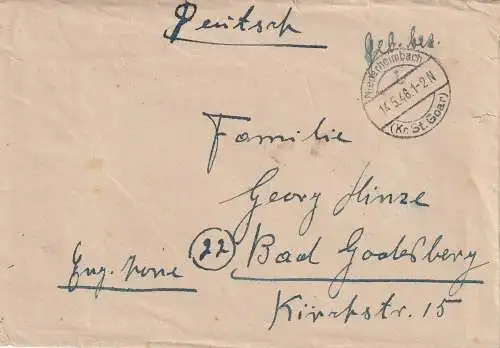 Deutsch
Geb. bez.
Niederheimbach
14.5.48.1-2 N
(Kr. St. Goar)
Familie
Georg Hinze
(22) Bad Godesberg
Eng. Zone
Kirchstr. 15